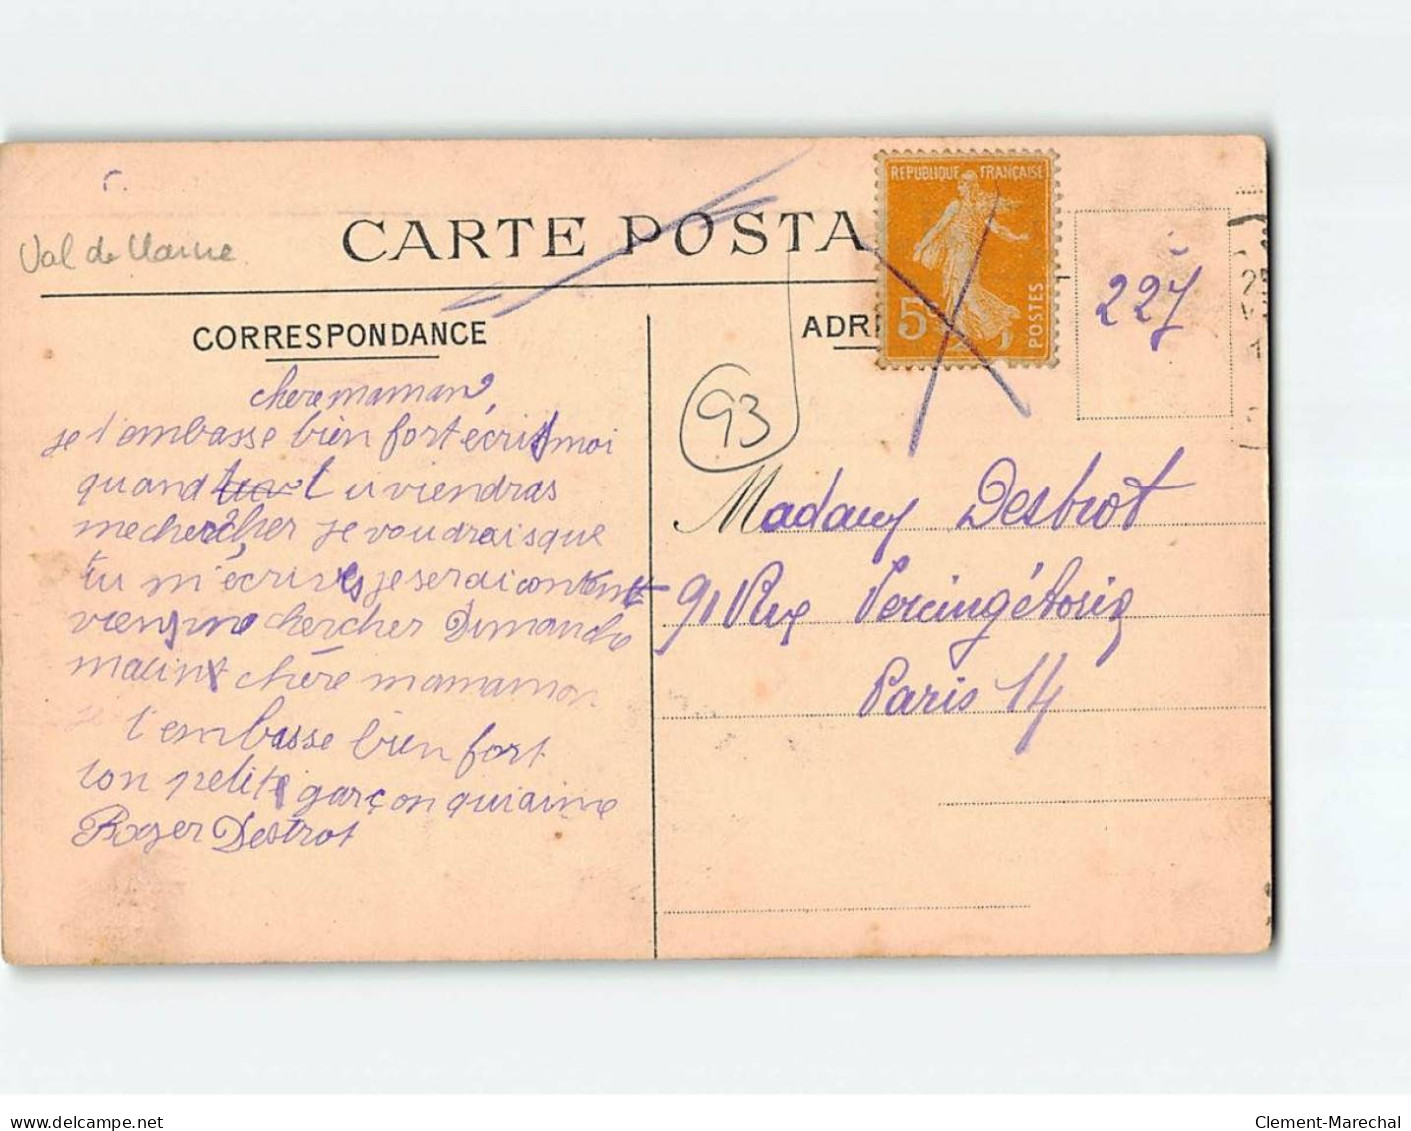 Val de Marne
CARTE POSTA
REPUBLIQUE FRANÇAISE
5c
POSTES
227
CORRESPONDANCE
ADR
93
chere maman,
je t'embasse bien fort écrit moi
quand tu viendras
me chercher je voudrais que
tu m'écrives je serai content
viens me chercher Dimanche
matin chère mamaman
je t'embasse bien fort
ton petite garçon qui aime
Roger Destrot
Madame Destrot
91 Rue Vercingétorix
Paris 14
www.delcampe.net
Clement-Marechal